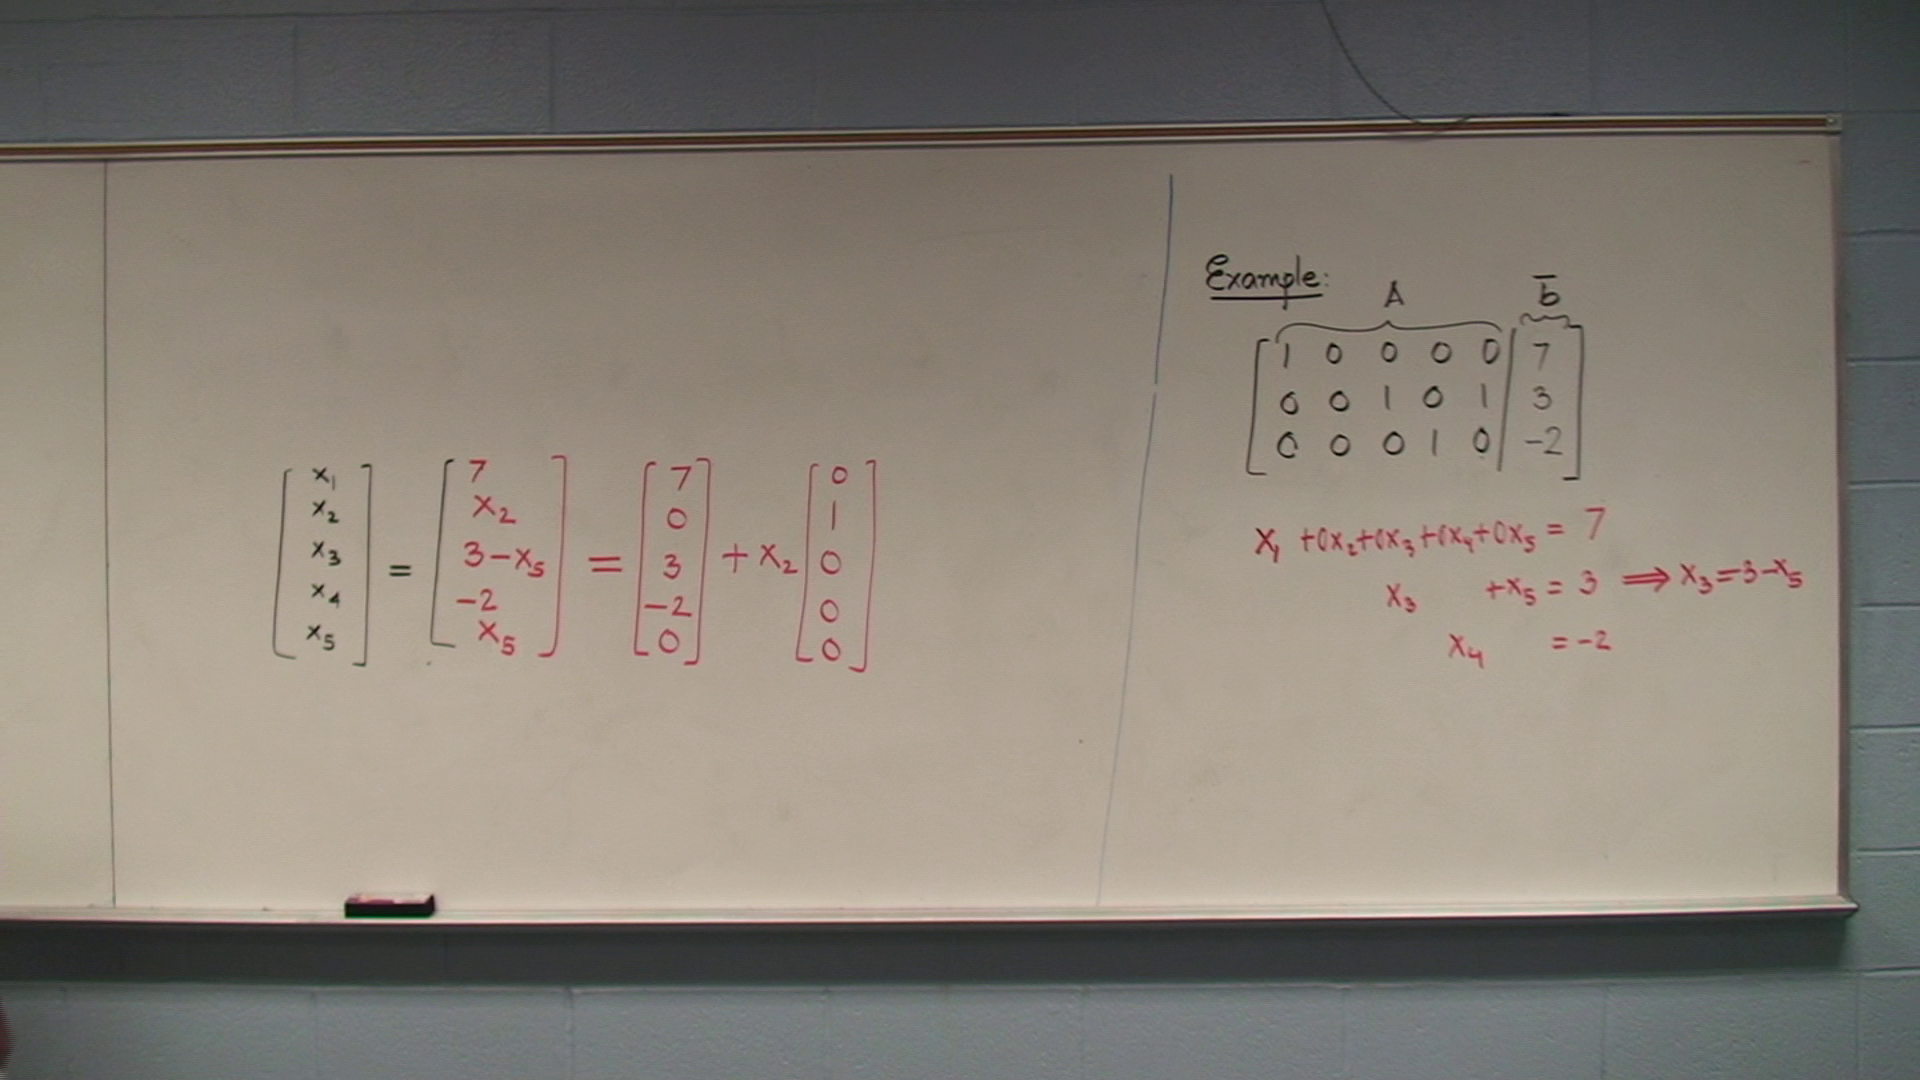 [x₁ x₂ x₃ x₄ x₅] = [7 x₂ 3-x₅ -2 x₅] = [7 0 3 -2 0] + x₂ [0 1 0 0 0]
Example:
A b̅
1 0 0 0 0 | 7
0 0 1 0 1 | 3
0 0 0 1 0 | -2
x₁ +0x₂+0x₃+0x₄+0x₅ = 7
x₃ +x₅ = 3 ⟹ x₃=3-x₅
x₄ = -2